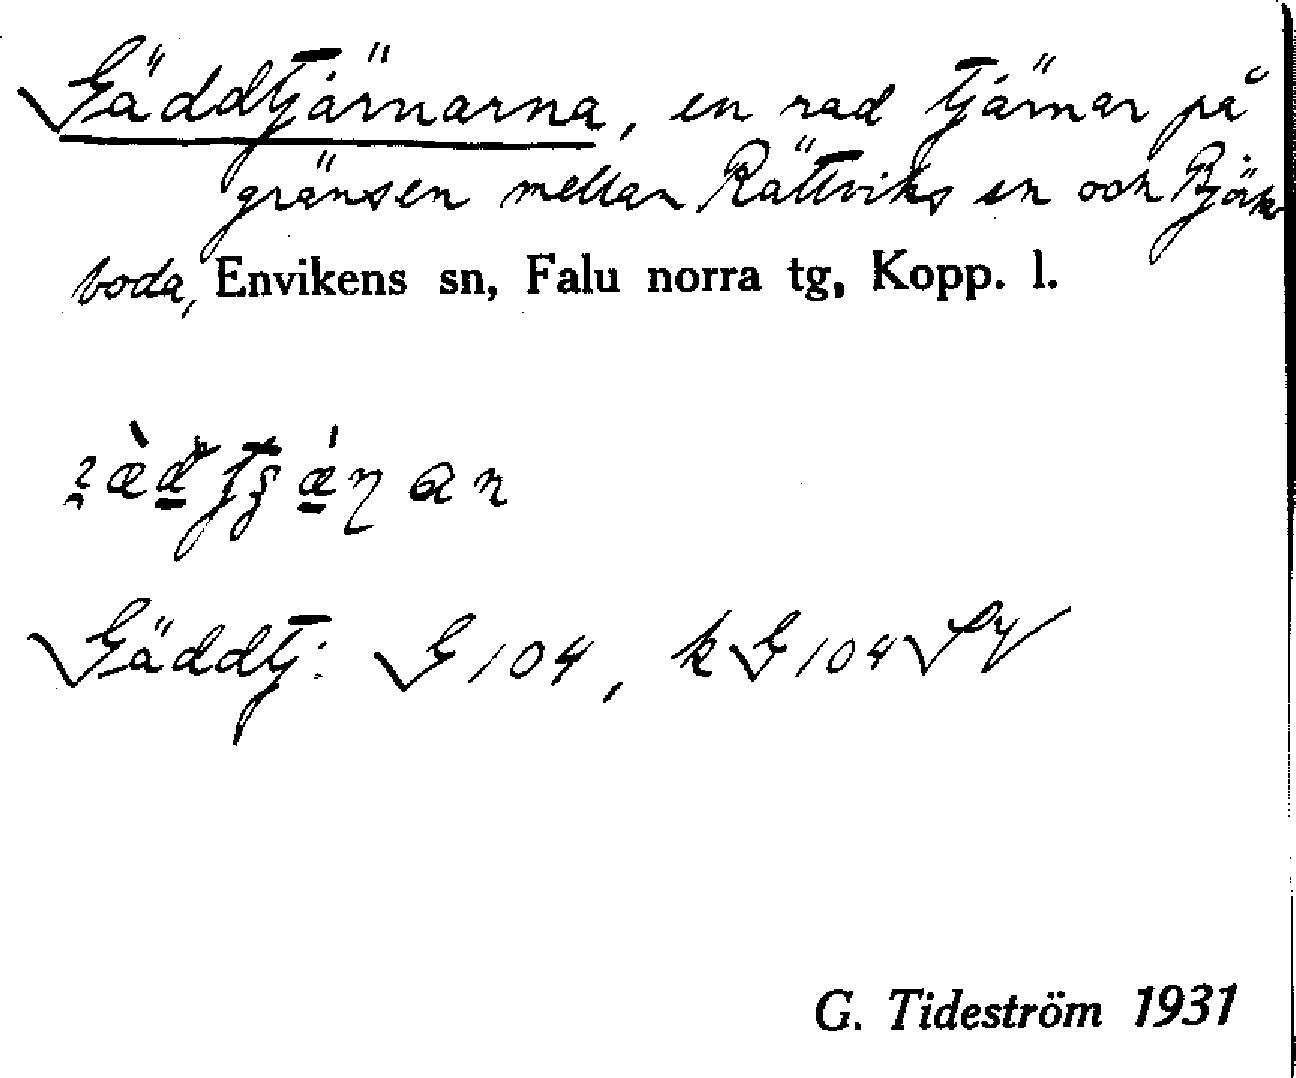 Gäddtjärnarna, en rad tjärnar på
gränsen mellan Rättviks sn och Björs-
boda, Envikens sn, Falu norra tg, Kopp. l.
Gäddtj: G 104, k G 104 SV
G. Tideström 1931